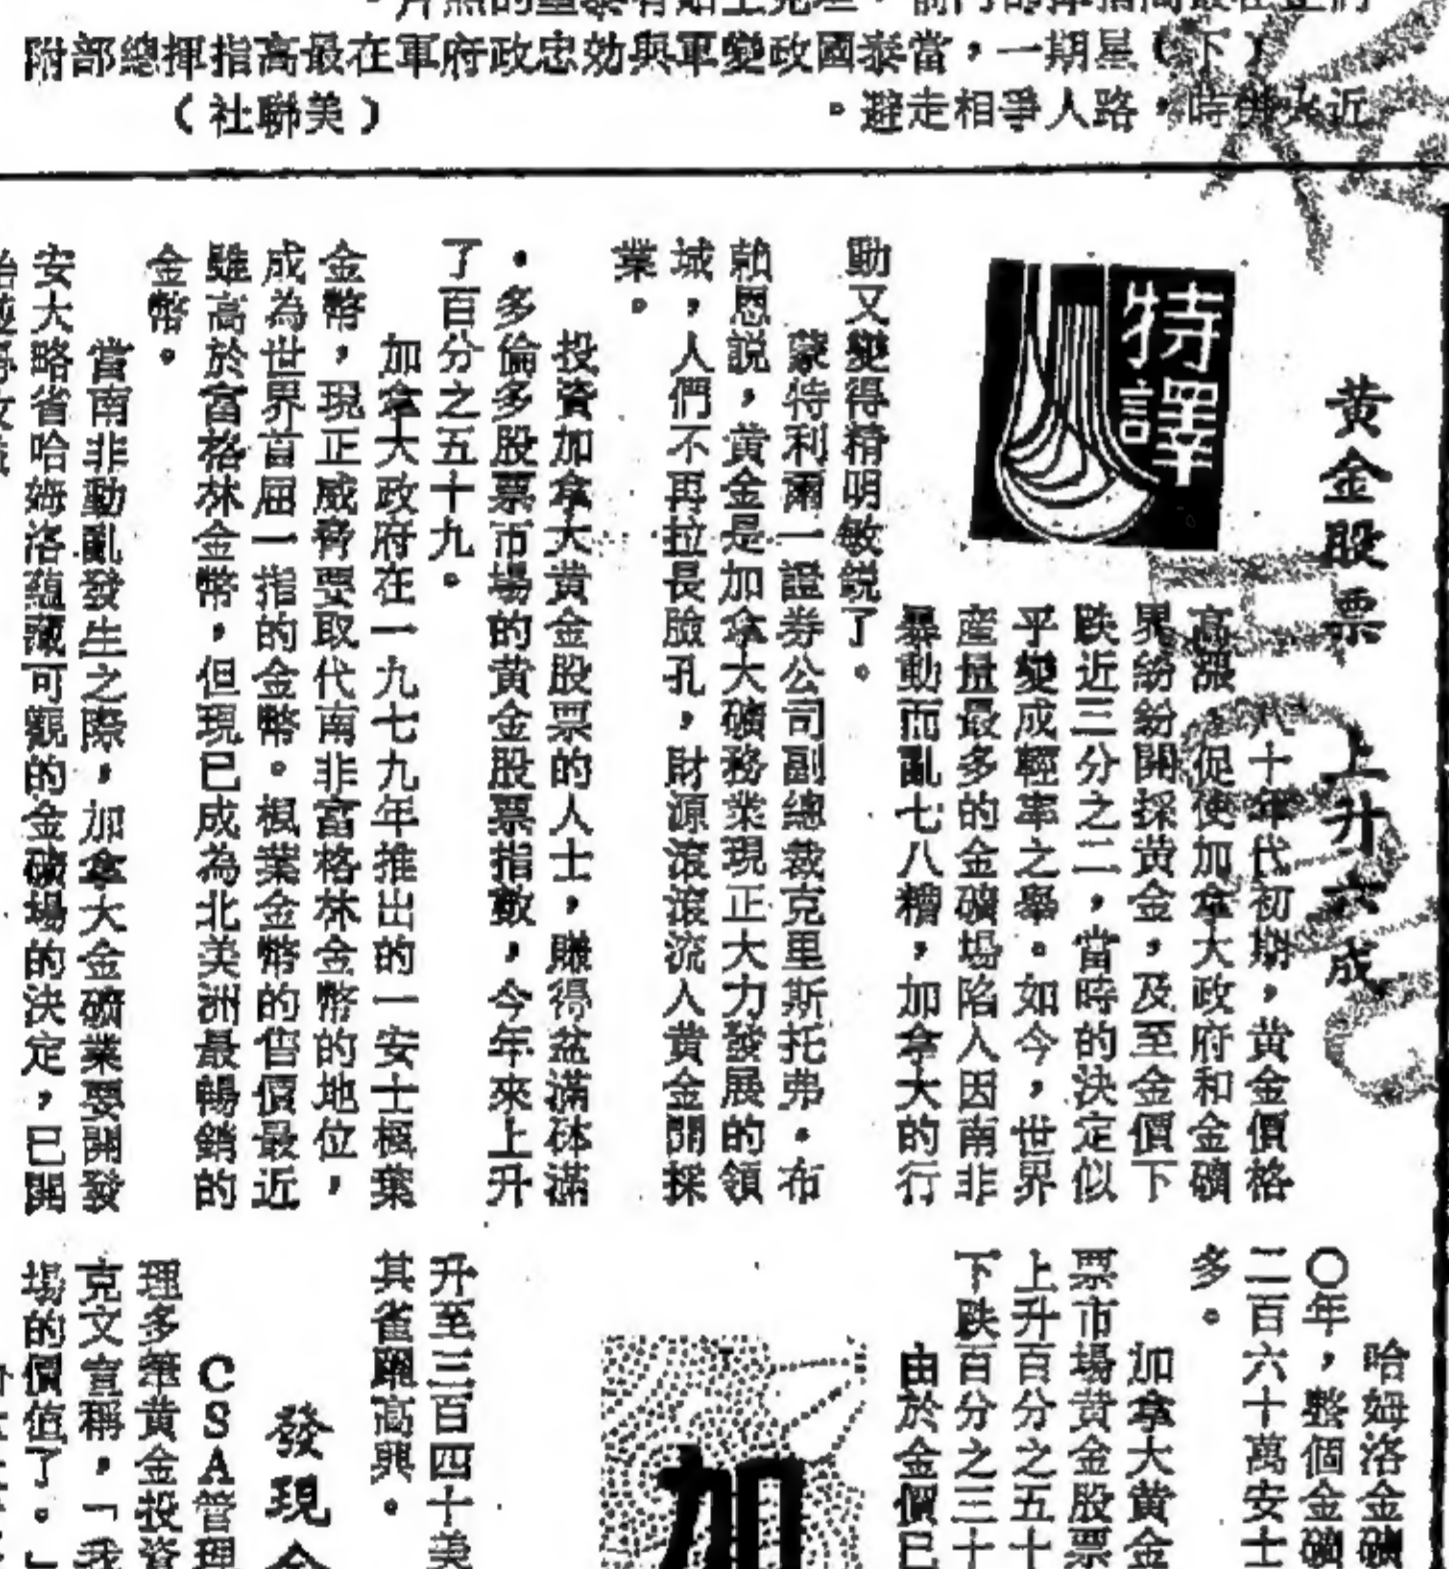 （下）星期一，當泰國政變軍與効忠政府軍在最高指揮總部附
近火併時，路人爭相走避。
（美聯社）
黃金股票 上升六成
特譯
八十年代初期，黃金價格
高漲，促使加拿大政府和金礦
界紛紛開採黃金，及至金價下
跌近三分之二，當時的決定似
乎變成輕率之舉。如今，世界
産量最多的金礦場陷入因南非
暴動而亂七八糟，加拿大的行
動又變得精明敏銳了。
蒙特利爾一證券公司副總裁克里斯托弗·布
賴恩説，黃金是加拿大礦務業現正大力發展的領
域，人們不再拉長臉孔，財源滾滾流入黃金開採
業。
投資加拿大黃金股票的人士，賺得盆滿砵滿
。多倫多股票市場的黃金股票指數，今年來上升
了百分之五十九。
加拿大政府在一九七九年推出的一安士楓葉
金幣，現正威脅要取代南非富格林金幣的地位，
成為世界首屈一指的金幣。楓葉金幣的售價最近
雖高於富格林金幣，但現已成為北美洲最暢銷的
金幣。
當南非動亂發生之際，加拿大金礦業要開發
安大略省哈姆洛蘊藏可觀的金礦場的決定，已開
哈姆洛金礦
〇年，整個金礦
二百六十萬安士
多。
加拿大黃金
票市場黃金股票
上升百分之五十
下跌百分之三十
由於金價已
加
升至三百四十美
其雀躍高興。
發現金
CSA管理
理多筆黃金投資
克文宣稱，「我
場的價值了。」